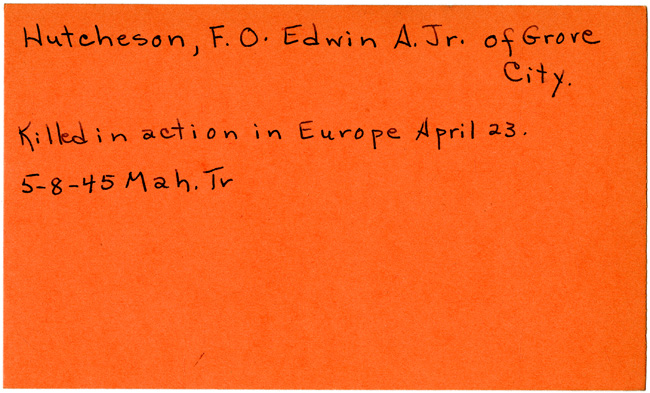 Hutcheson, F. O. Edwin A. Jr. of Grove
City.
Killed in action in Europe April 23.
5-8-45 Mah. Tr